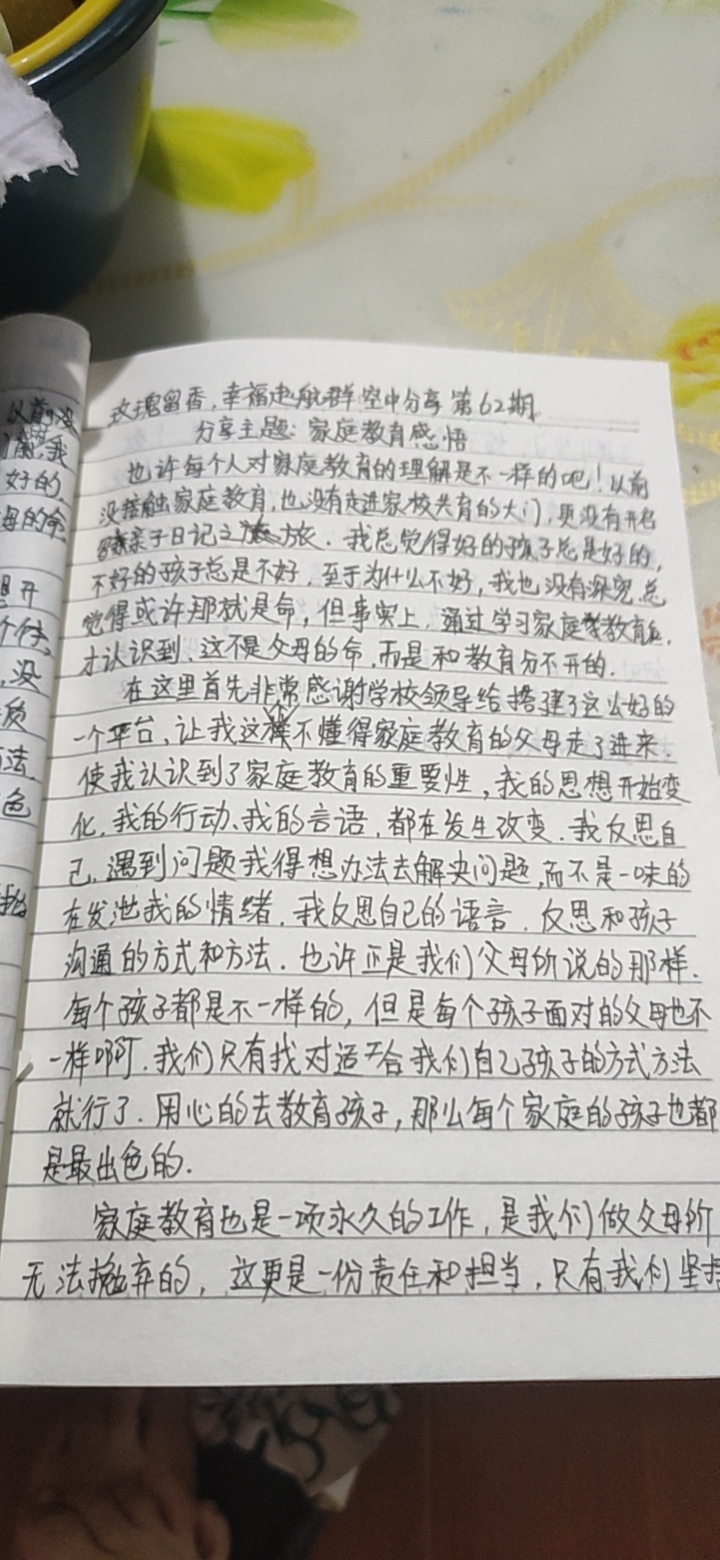 玫瑰留香,幸福起航群空中分享第62期
分享主题:家庭教育感悟
也许每个人对家庭教育的理解是不一样的吧!以前
没接触家庭教育,也没有走进家校共育的大门,更没有开启
亲子日记之旅.我总觉得好的孩子总是好的,
不好的孩子总是不好,至于为什么不好,我也没有深究,总
觉得或许那就是命,但事实上,通过学习家庭教育
才认识到,这不是父母的命,而是和教育分不开的.
在这里首先非常感谢学校领导给搭建了这么好的
一个平台,让我这样不懂得家庭教育的父母走了进来.
使我认识到了家庭教育的重要性,我的思想开始变
化,我的行动、我的言语,都在发生改变.我反思自
己,遇到问题我得想办法去解决问题,而不是一味的
在发泄我的情绪.我反思自己的语言.反思和孩子
沟通的方式和方法.也许正是我们父母所说的那样.
每个孩子都是不一样的,但是每个孩子面对的父母也不
一样啊.我们只有找对适合我们自己孩子的方式方法
就行了.用心的去教育孩子,那么每个家庭的孩子也都
是最出色的.
家庭教育也是一项永久的工作,是我们做父母所
无法抛弃的,这更是一份责任和担当,只有我们坚持
以前没
我
好的
母的命
开
个
没
质
法
色